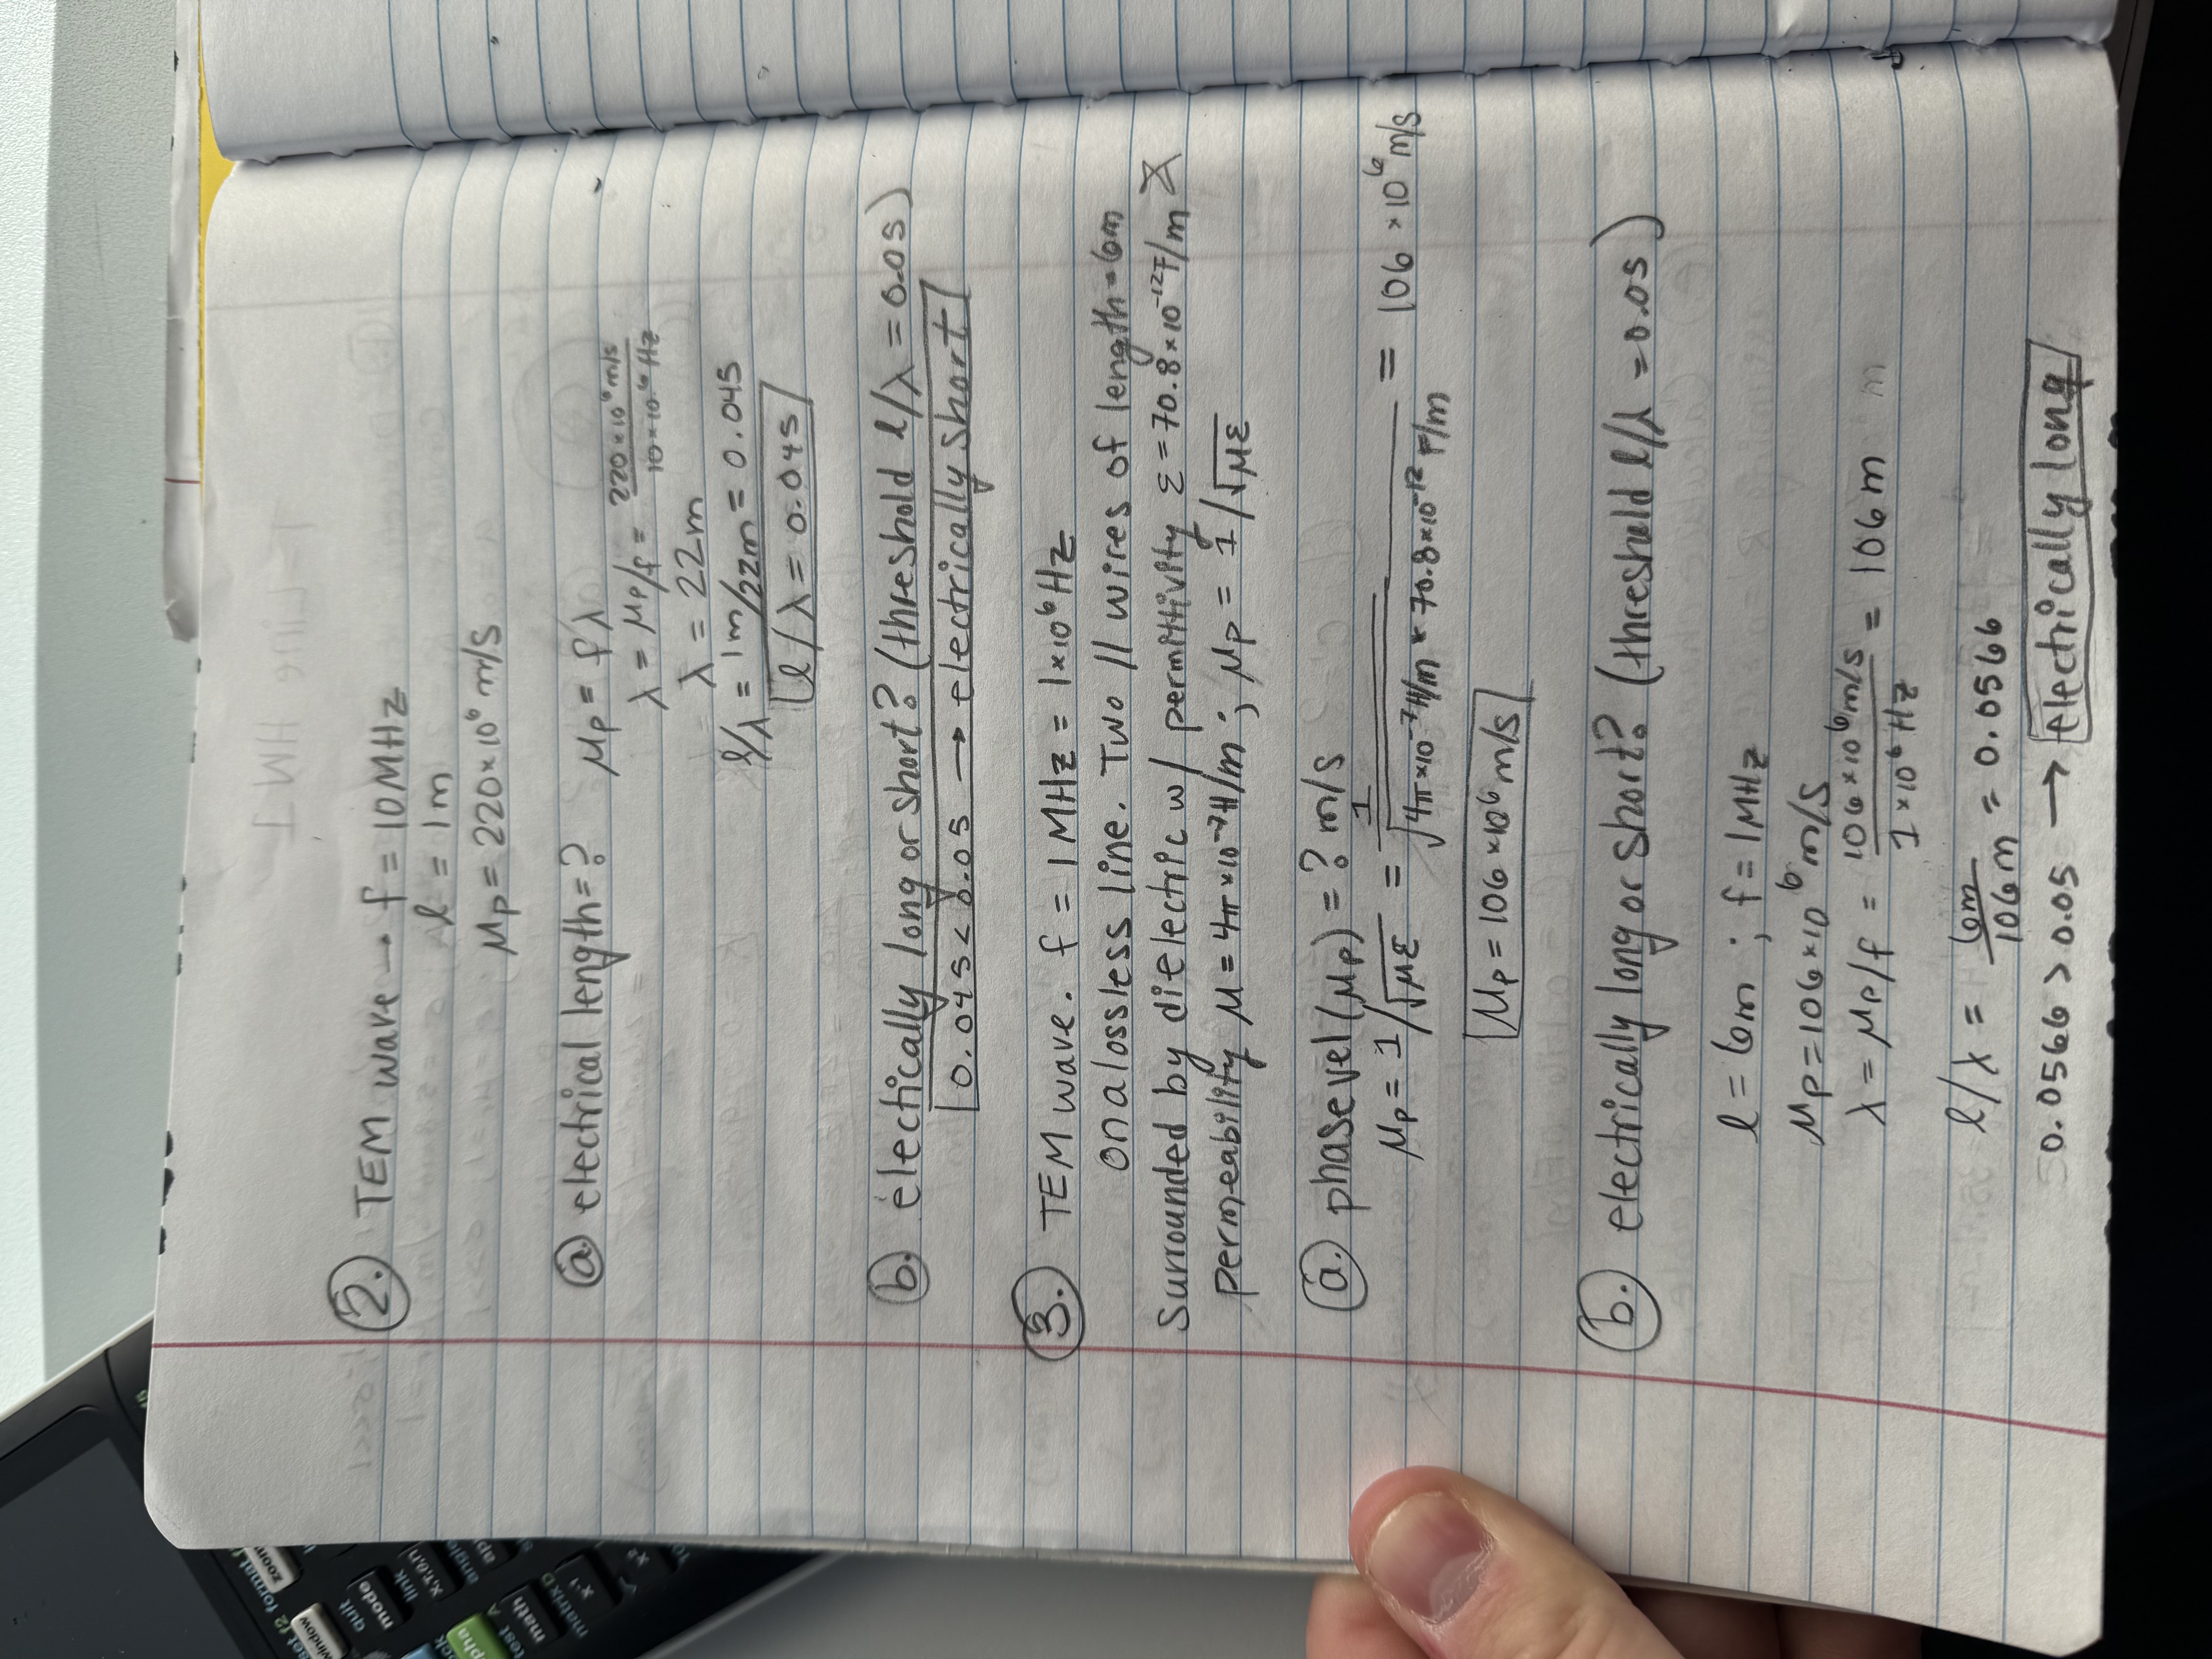 set f2 format f
window zoom
quit
mode
link
X,T,θ,n
alpha
angle
test A
math
matrix D
x-1
x²
2. TEM wave → f = 10MHz
l = 1m
μp = 220×10⁶ m/s
a electrical length = ? μp = fλ
λ = μp/f = 220×10⁶ m/s / 10×10⁶ Hz
λ = 22m
l/λ = 1m/22m = 0.045
l/λ = 0.045
b. electically long or short? (threshold l/λ = 0.05)
0.045 < 0.05 → electrically short
3. TEM wave. f = 1 MHz = 1×10⁶ Hz
on a lossless line. Two // wires of length = 6m
surrounded by dielectric w/ permittivity ε = 70.8×10⁻¹² F/m &
permeability μ = 4π×10⁻⁷ H/m ; μp = 1/√με
a. phase vel (μp) = ? m/s
μp = 1/√με = 1 / √4π×10⁻⁷ H/m * 70.8×10⁻¹² F/m = 106 ×10⁶ m/s
μp = 106 ×10⁶ m/s
b. electrically long or short? (threshuld l/λ = 0.05)
l = 6m ; f = 1MHz
μp = 106×10⁶ m/s
λ = μp/f = 106×10⁶ m/s / 1×10⁶ Hz = 106 m m
l/λ = 6m / 106m = 0.0566
0.0566 > 0.05 → electrically long